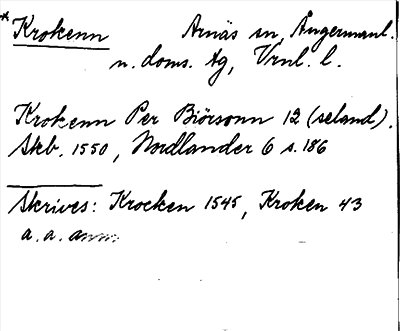 * Krokenn Arnäs sn, Ångermanl.
n. doms. tg, Vrnl. l.
Krokenn Per Biörsonn 12 (seland).
Skb. 1550, Nordlander 6 s. 186
Skrives: Krocken 1545, Kroken 43
a. a. anm.